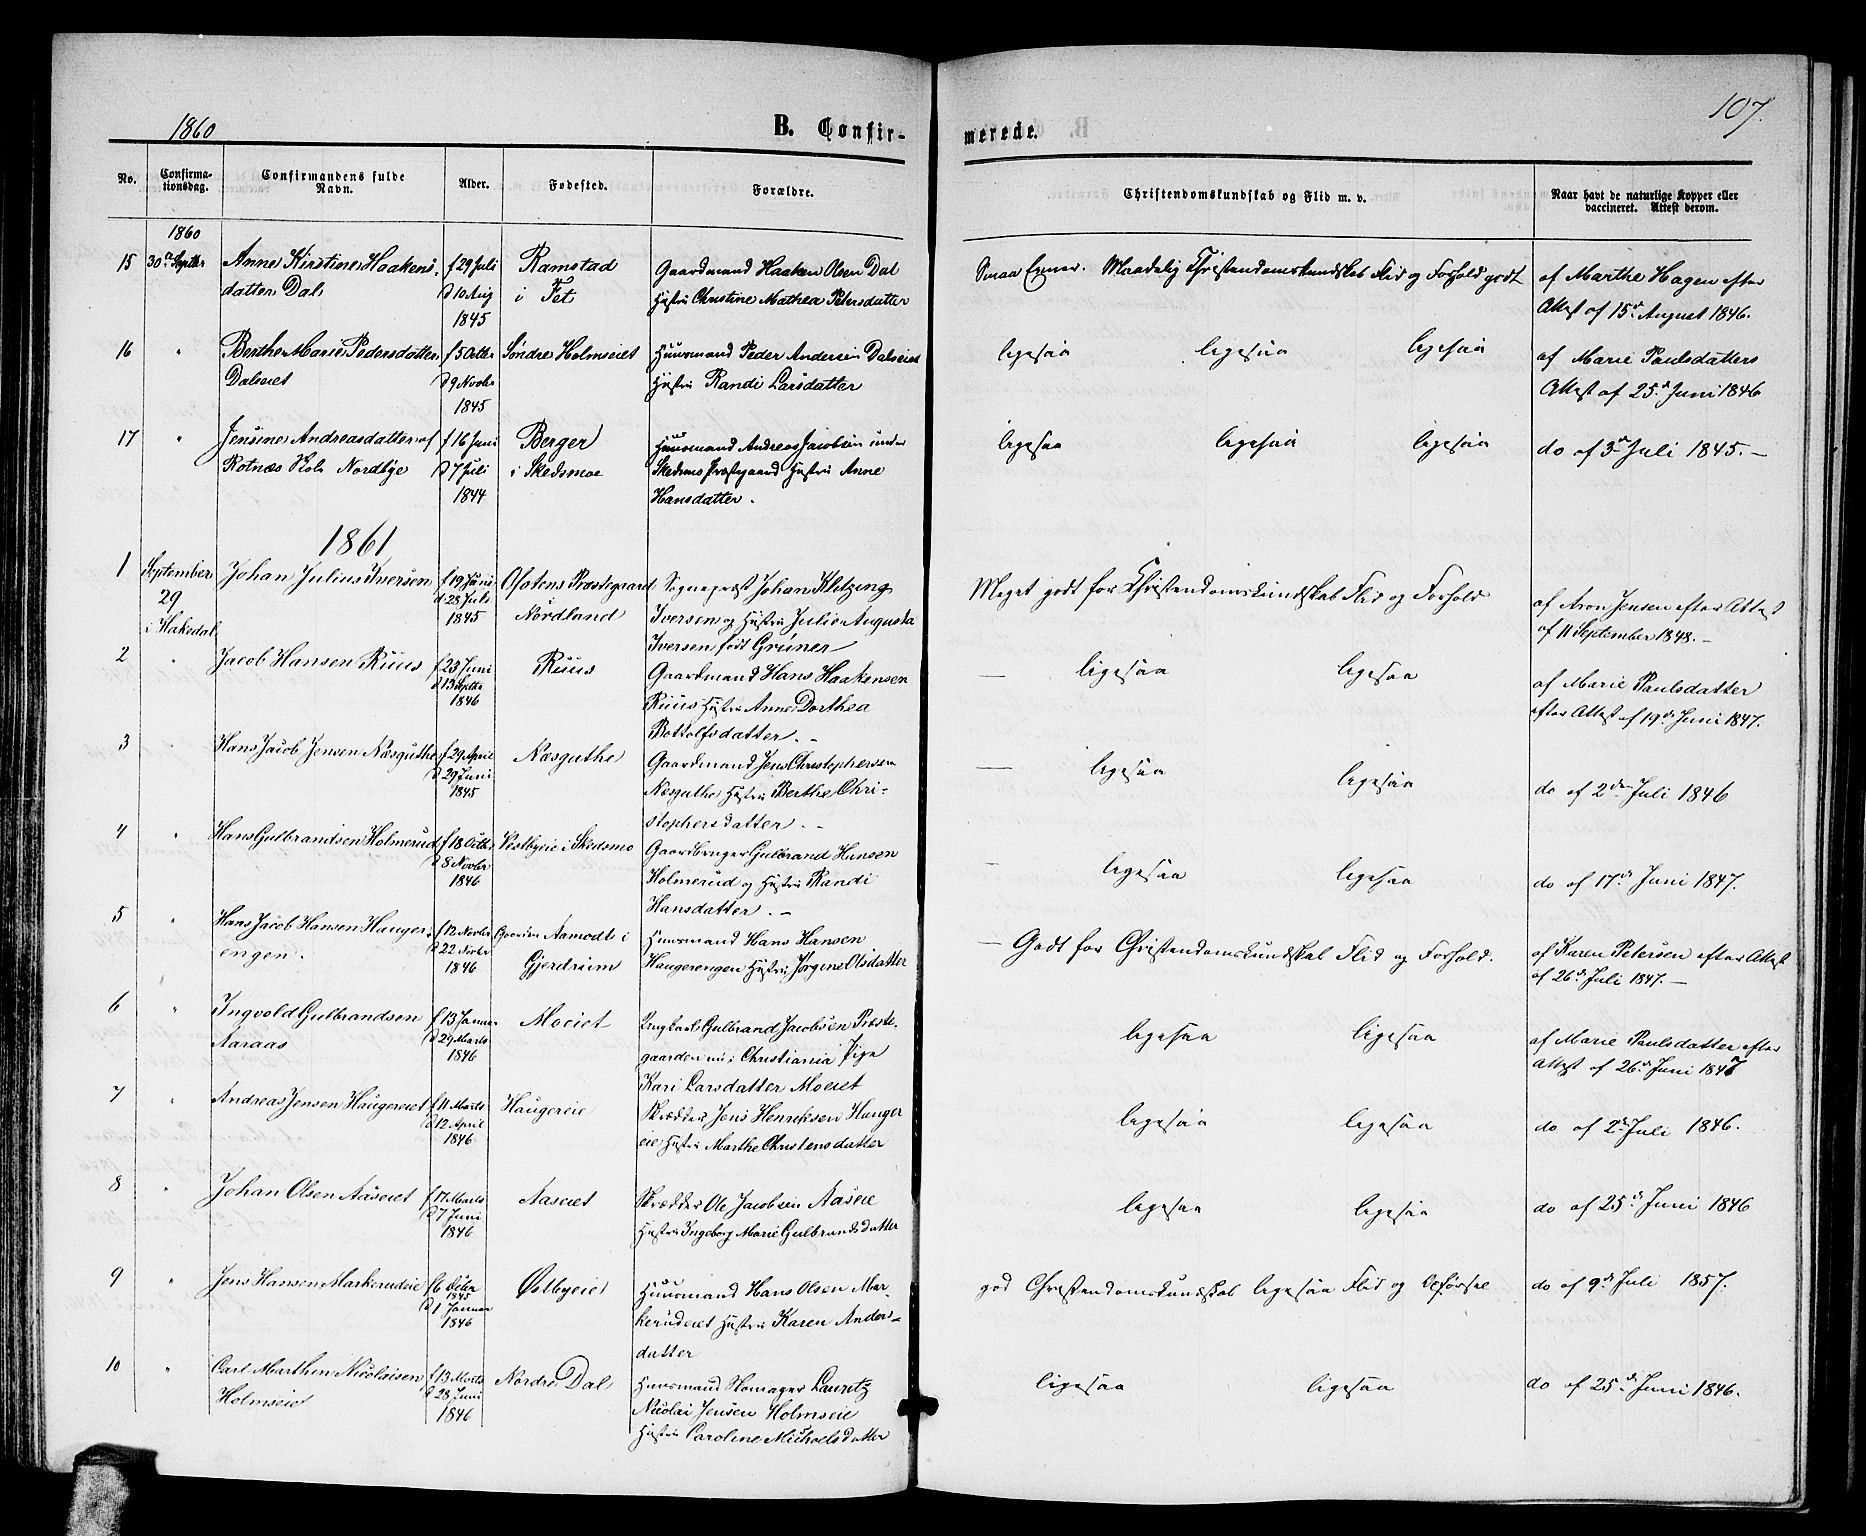 1860
B. Confir-
merede.
107.
No.
Confirma-
tionsdag.
Confirmandens fulde
Navn.
Alder.
Fødested.
Forældre.
Christendomskundskab og Flid m. v.
Naar havt de naturlige Kopper eller
vaccineret. Attest derom.
1860
15 30te Septbr Anne Kirstine Haakens- f 29 Juli Ramstad Gaardmand Haaken Olsen Dal Maadelig Christendomskundskab Flid og Forhold godt af Marthe Hagen efter
datter Dal d 10 Aug i Fet Hustru Christine Mathea Petersdatter Attest af 15de August 1846.
1845
16 " Berthe Marie Pedersdatter f 5 Octbr Søndre Holmseiet Huusmand Peder Andersen Dalseiet ligesaa ligesaa ligesaa af Marie Paulsdatters
Dalseiet d 9 Novbr Hustru Randi Larsdatter Attest af 25de Juni 1846
1845
17 " Jensine Andreasdatter af f 16 Juni Berger Huusmand Andreas Jacobsen under ligesaa ligesaa ligesaa do af 3de Juli 1845. —
Rotnæs Nordbye d 7 Juli i Skedsmoe Skedsmo Præstegaard Hustru Anne
1844 Hansdatter.
1861
1 September Johan Julius Iversen f 19 Juni Ofotens Præstegaard Sognepræst Johan Klitzing Meget godt for Christendomskundskab Flid og Forhold af Aron Jensen efter Attest
29 d. 28 Juli Nordland Iversen og Hustru Julie Augusta af 11 September 1848. —
i Hakedal 1845 Iversen født Grüner
2 " Jacob Hansen Ruus f 23 Juni Ruus Gaardmand Hans Haakensen — ligesaa ligesaa af Marie Paulsdatter
d 13 Septbr Ruus Hustru Anne Dorthea efter Attest af 19de Juni 1847.
1846 Bottolfsdatter. —
3 " Hans Jacob Jensen Næsguthe f 29 April Næsguthe Gaardmand Jens Christophersen — ligesaa ligesaa do af 2den Juli 1846
d 29 Juni Næsguthe Hustru Berthe Chri-
1845 stophersdatter. —
4 " Hans Gulbrandsen Holmerud f 18 Octbr Vestbyeie i Skedsmo Gaardbruger Gulbrand Hansen — ligesaa ligesaa do af 17de Juni 1847.
d 8 Novbr Holmerud og Hustru Randi
1846 Hansdatter. —
5 " Hans Jacob Hansen Hauger- f 12 Novbr Gaarden Aamodt i Huusmand Hans Hansen — Godt for Christendomskundskab Flid og Forhold. af Karen Petersen efter Attest
engen. d 22 Novbr Gjerdrum Haugerengen Hustru Jørgine Olsdatter af 26de Juli 1847. —
1846
6 " Ingvold Gulbrandsen f 13 Januar Moeiet Ungkarl Gulbrand Jacobsen Præste- ligesaa ligesaa af Marie Paulsdatter efter
Aaraas d 29 Marts gaarden nu i Christiania Pige Attest af 26de Juni 1847
1846 Kari Larsdatter Moeiet
7 " Andreas Jensen Haugereiet f 11 Marts Haugereie Skrædder Jens Henriksen Hauger ligesaa ligesaa do af 2de Juli 1846.
d 12 April eie Hustru Marthe Christensdatter
1846
8 " Johan Olsen Aaseiet f 17 Marts Aaseiet Skrædder Ole Jacobsen Aaseie ligesaa ligesaa do af 25de Juni 1846
d 7 Juni Hustru Ingeborg Marie Gulbrandsdatter
1846
9 " Jens Hansen Markerudeie f 6 Octbr Østbyeie Huusmand Hans Olsen Mar- god Christendomskundskab ligesaa Flid og Opførsel do af 9de Juli 1857.
1845 kerudeiet Hustru Karen Anders-
d 1 Januar datter
1846
10 " Carl Marthin Nicolaisen f 13 Marts Nordre Dal Huusmand Skomager Lauritz ligesaa ligesaa do af 25de Juni 1846.
Holmseie d 28 Juni Nicolai Jensen Holmseie
1846 Hustru Caroline Michaelsdatter